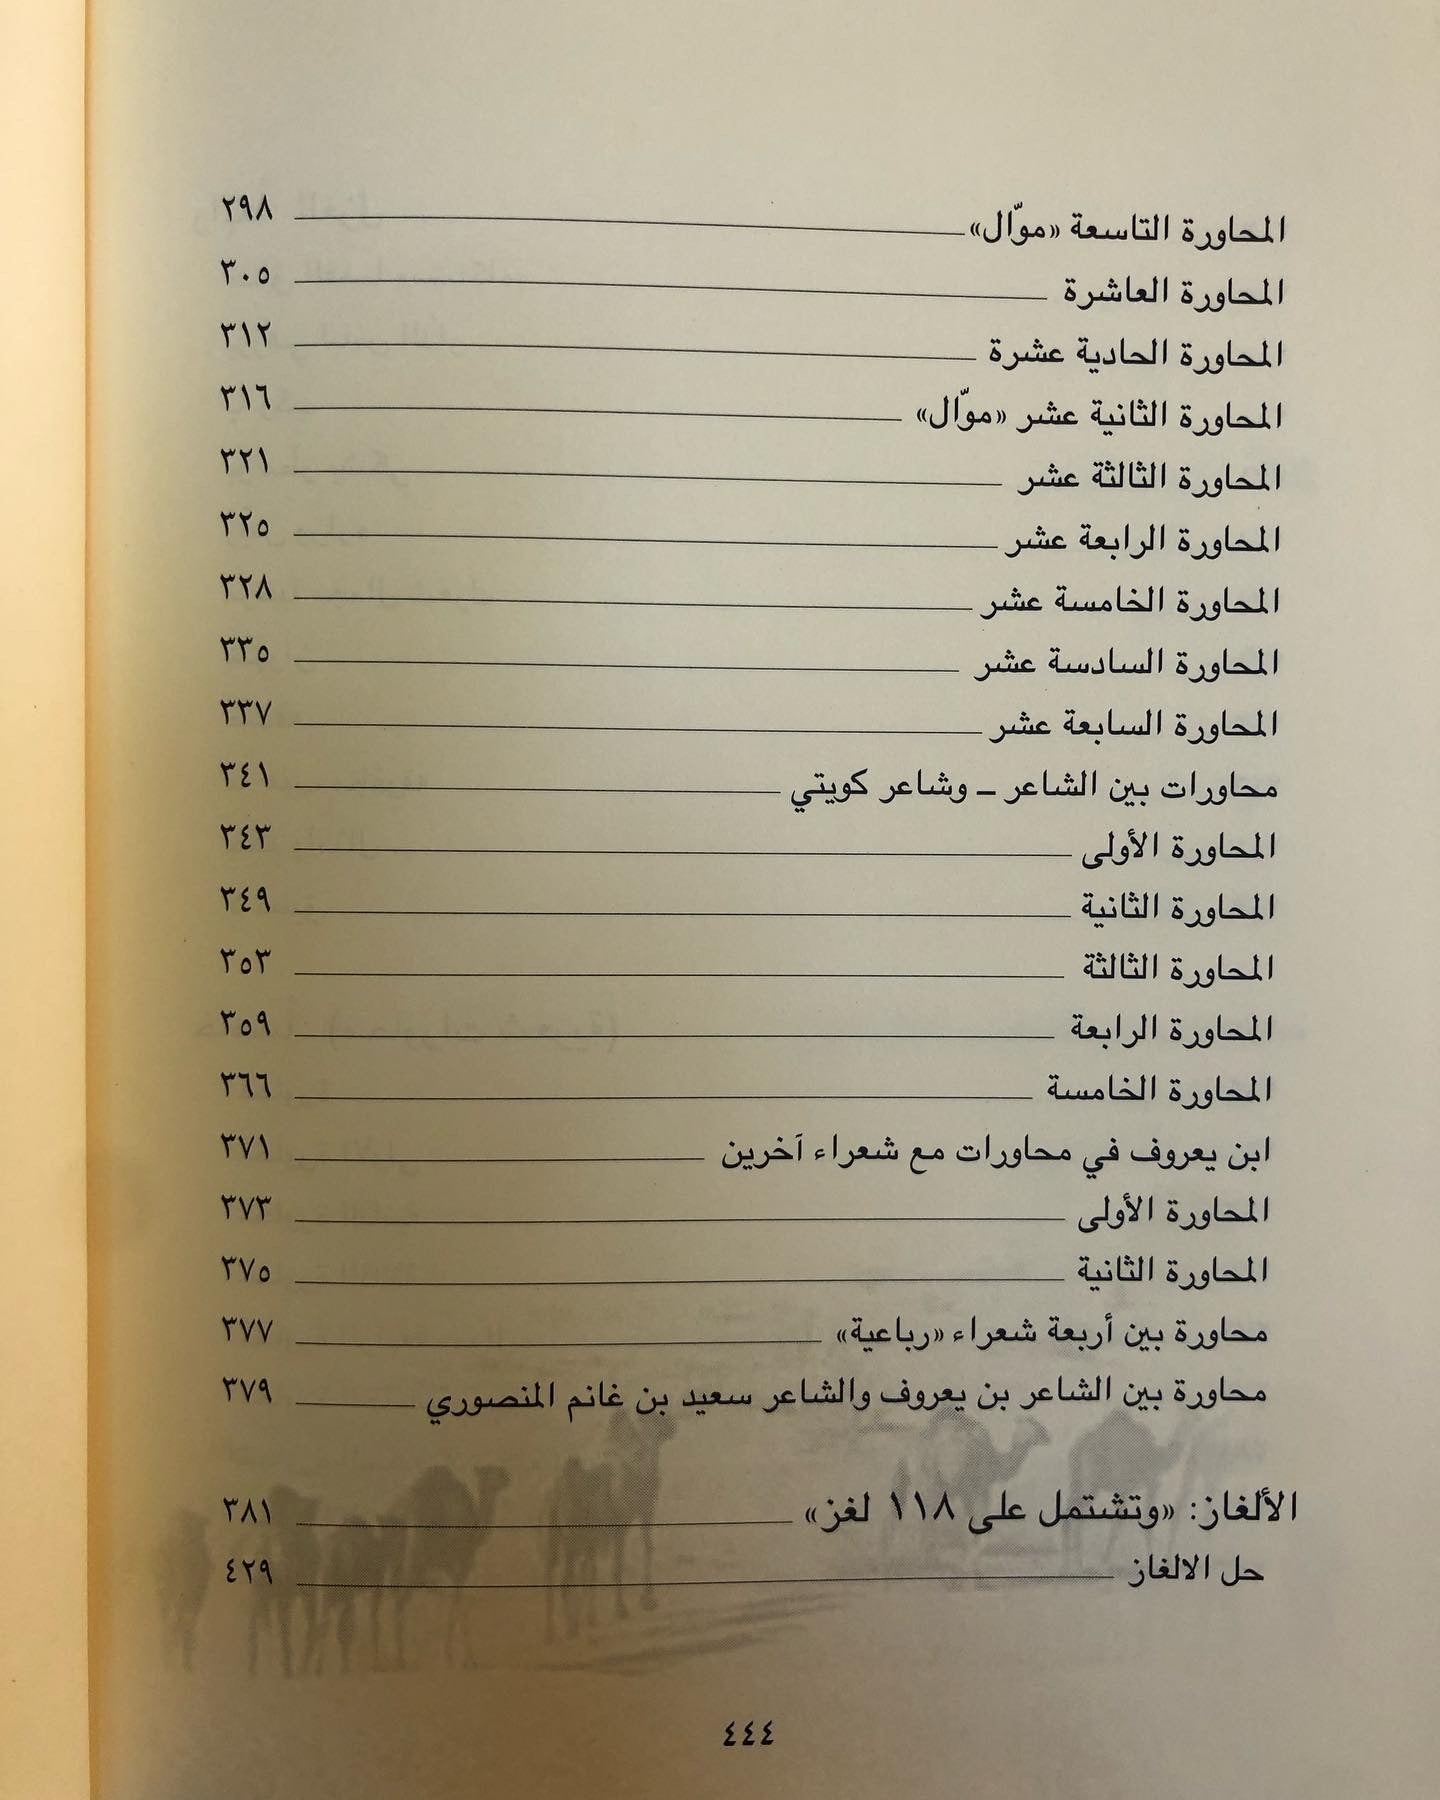 المحاورة التاسعة «موّال» ٢٩٨
المحاورة العاشرة ٣٠٥
المحاورة الحادية عشرة ٣١٢
المحاورة الثانية عشر «موّال» ٣١٦
المحاورة الثالثة عشر ٣٢١
المحاورة الرابعة عشر ٣٢٥
المحاورة الخامسة عشر ٣٢٨
المحاورة السادسة عشر ٣٣٥
المحاورة السابعة عشر ٣٣٧
محاورات بين الشاعر ـ وشاعر كويتي ٣٤١
المحاورة الأولى ٣٤٣
المحاورة الثانية ٣٤٩
المحاورة الثالثة ٣٥٣
المحاورة الرابعة ٣٥٩
المحاورة الخامسة ٣٦٦
ابن يعروف في محاورات مع شعراء آخرين ٣٧١
المحاورة الأولى ٣٧٣
المحاورة الثانية ٣٧٥
محاورة بين أربعة شعراء «رباعية» ٣٧٧
محاورة بين الشاعر بن يعروف والشاعر سعيد بن غانم المنصوري ٣٧٩
الألغاز: «وتشتمل على ١١٨ لغز» ٣٨١
حل الالغاز ٤٢٩
٤٤٤